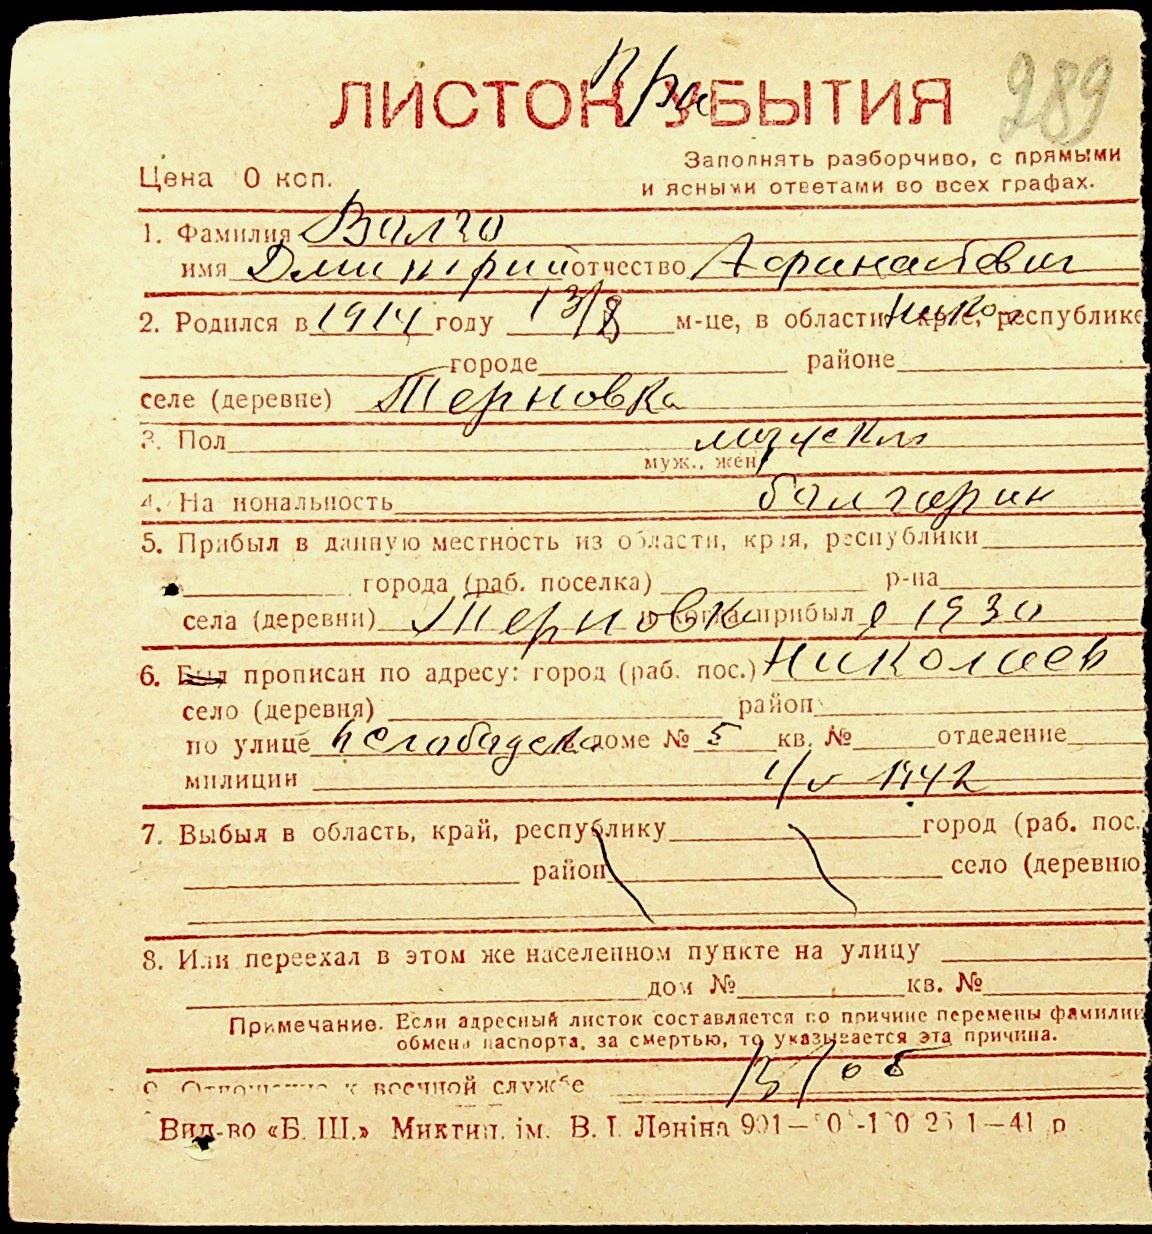 При
ЛИСТОК УБЫТИЯ 289
Заполнять разборчиво, с прямыми
Цена 0 коп. и ясными ответами во всех графах.
1. Фамилия Валго
имя Дмитрий отчество Афанасевич
2. Родился в 1914 году 13/8 м-це, в области, крае, республике Нико
городе районе
селе (деревне) Терновка
3. Пол мужской
муж., жен
4. На иональность болгарин
5. Прибыл в данную местность из области, края, республики
города (раб. поселка) р-на
села (деревни) Терновка прибыл в 1930
6. Был прописан по адресу: город (раб. пос.) Николаев
село (деревня) район
по улице доме № 5 кв. № отделение
милиции 1942
7. Выбыл в область, край, республику город (раб. пос.
район село (деревню
8. Или переехал в этом же населенном пункте на улицу
дом № кв. №
Примечание. Если адресный листок составляется по причине перемены фамилии
обмена паспорта, за смертью, то указывается эта причина.
9. Отношение к военной службе В/об
Вид-во «Б. Ш.» Миктип. ім. В. І. Леніна